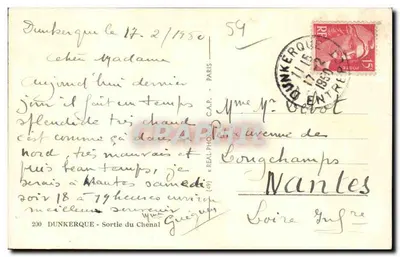 Dunkerque le 17-2/1950
54
Chère Madame
Aujourd'hui dernier
jour il fait un temps
splendide très chaud
c'est comme ça dans le
nord très mauvais et
puis beau temps, je
serais à Nantes samedi
soir 18 à 19 heures environ
meilleur souvenir
DUNKERQUE
17-2
1950
RF
Mme Mt
avenue de
Longchamps
Nantes
Loire Infre
"REAL PHOTO" C.A.P. PARIS
200 DUNKERQUE - Sortie du Chenal